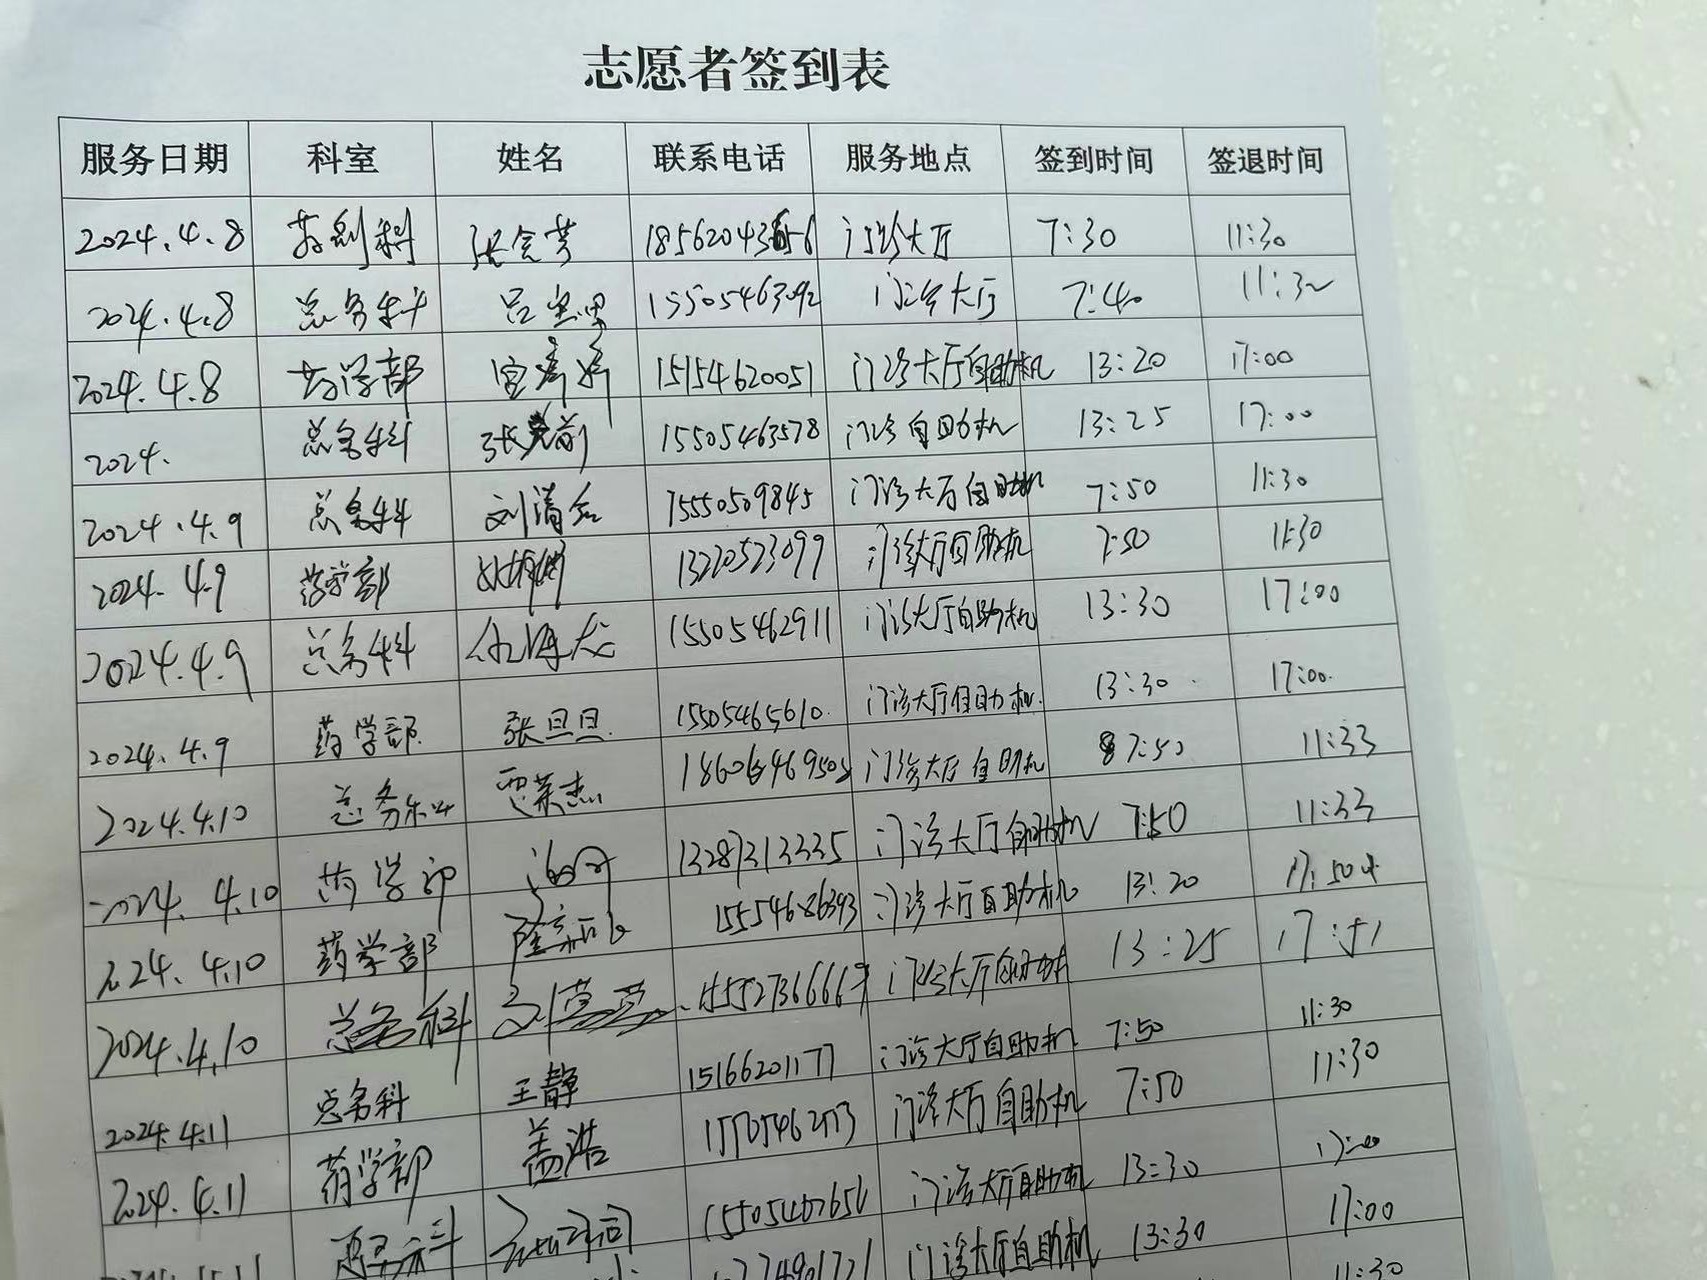 志愿者签到表
服务日期 科室 姓名 联系电话 服务地点 签到时间 签退时间
2024.4.8 药剂科 张会芳 门诊大厅 7:30 11:30
2024.4.8 总务科 15505463092 门诊大厅 7:40 11:30
2024.4.8 药学部 15154620051 门诊大厅自助机 13:20 17:00
2024. 总务科 15505463578 门诊自助机 13:25 17:00
2024.4.9 总务科 15550509845 门诊大厅自助机 7:50 11:30
2024.4.9 药学部 13220523099 门诊大厅自助机 7:50 11:30
2024.4.9 总务科 15505462911 门诊大厅自助机 13:30 17:00
2024.4.9 药学部 张旦旦 15505465610 门诊大厅自助机 13:30 17:00
2024.4.10 总务科 贾荣杰 门诊大厅自助机 7:50 11:33
2024.4.10 药学部 13287313335 门诊大厅自助机 7:50 11:33
2024.4.10 药学部 15554686393 门诊大厅自助机 13:20
2024.4.10 总务科 门诊大厅自助机 13:25 17:51
2024.4.11 总务科 王静 15166201177 门诊大厅自助机 7:50 11:30
2024.4.11 药学部 盖浩 门诊大厅自助机 7:50 11:30
门诊大厅自助机 13:30 17:00
门诊大厅自助机 13:30 17:00
11:30